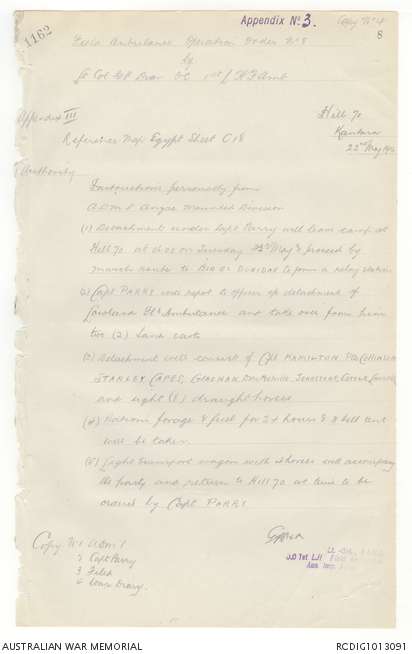 1162
Appendix No 3.
Copy No 4
8
Field Ambulance Operation Order No 8
by
Lt Col O.C. 1st L H F Amb
Appendix III
Hill 70
Kantara
22nd May
Reference Map Egypt Sheet C 18
Authority
Instructions personally from
A.D.M.S. Anzac Mounted Division
(1) Detachment under Capt Parry will leave camp at
Hill 70 at on Tuesday May & proceed by
march route to BIR EL DUEIDAR to form a relay station
(2) Capt PARRY will report to officer of detachment of
Lowland Fd Ambulance and take over from him
two (2) sand carts
(3) Detachment will consist of Cpl HAMILTON Ptes
STANLEY CAPES,
and eight (8) draught horses
(4) Rations forage & fuel for 24 hours & a bell tent
will be taken
(5) Light transport wagon with horses will accompany
the party and return to Hill 70 at time to be
ordered by Capt PARRY
Copy No 1 ADMS
2 Capt Parry
3 Filed
4 War Diary.
Lt. Col.
O.C 1st L.H. Field
Aus. Imp.
AUSTRALIAN WAR MEMORIAL
RCDIG1013091